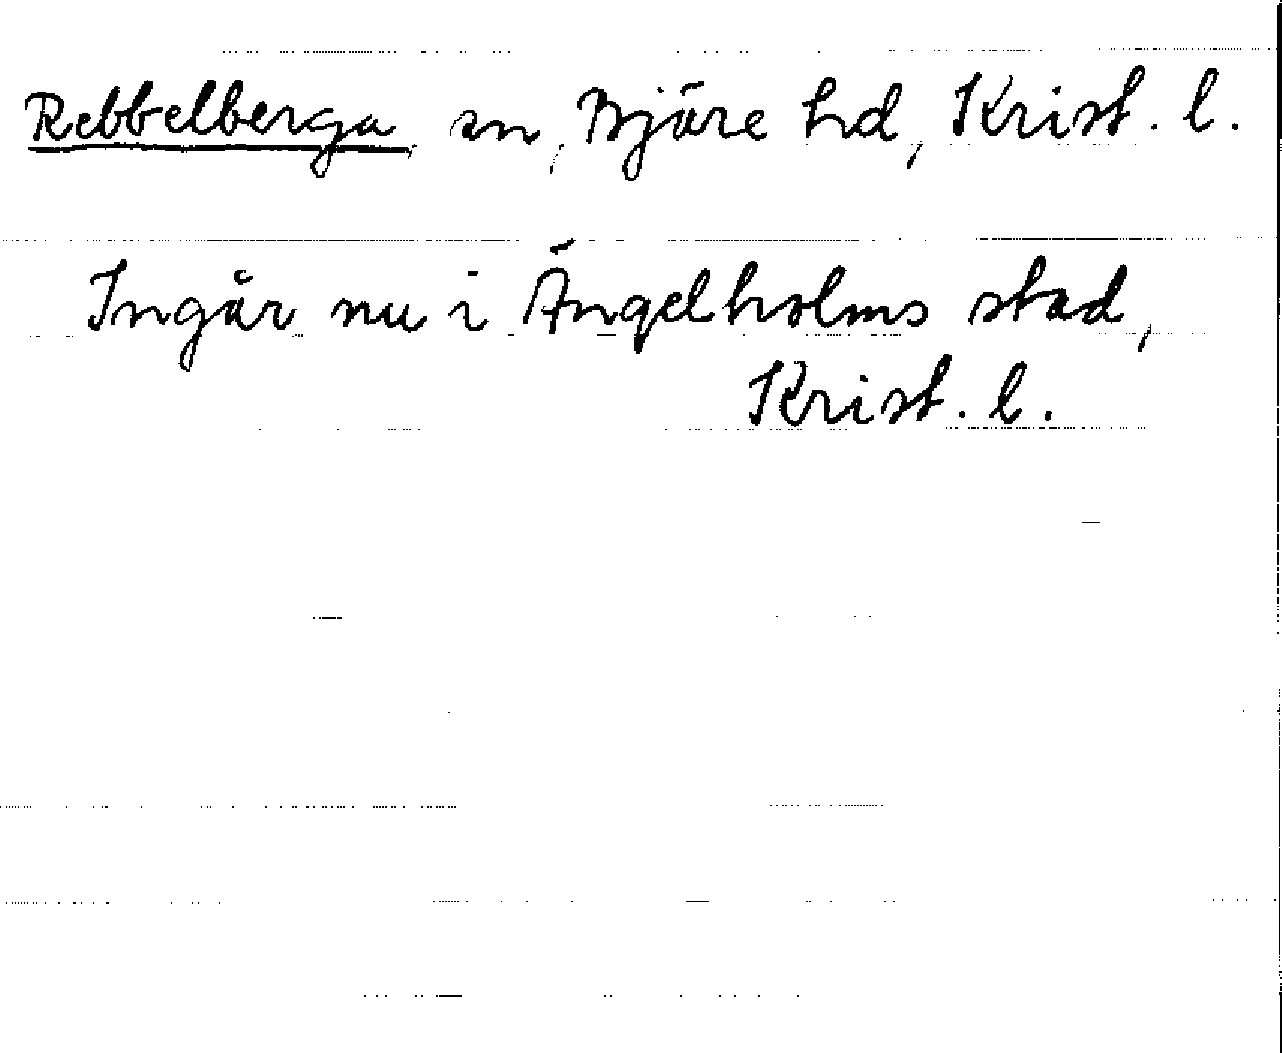 Rebbelberga sn, Bjäre hd, Krist. l.
Ingår nu i Ängelholms stad,
Krist. l.